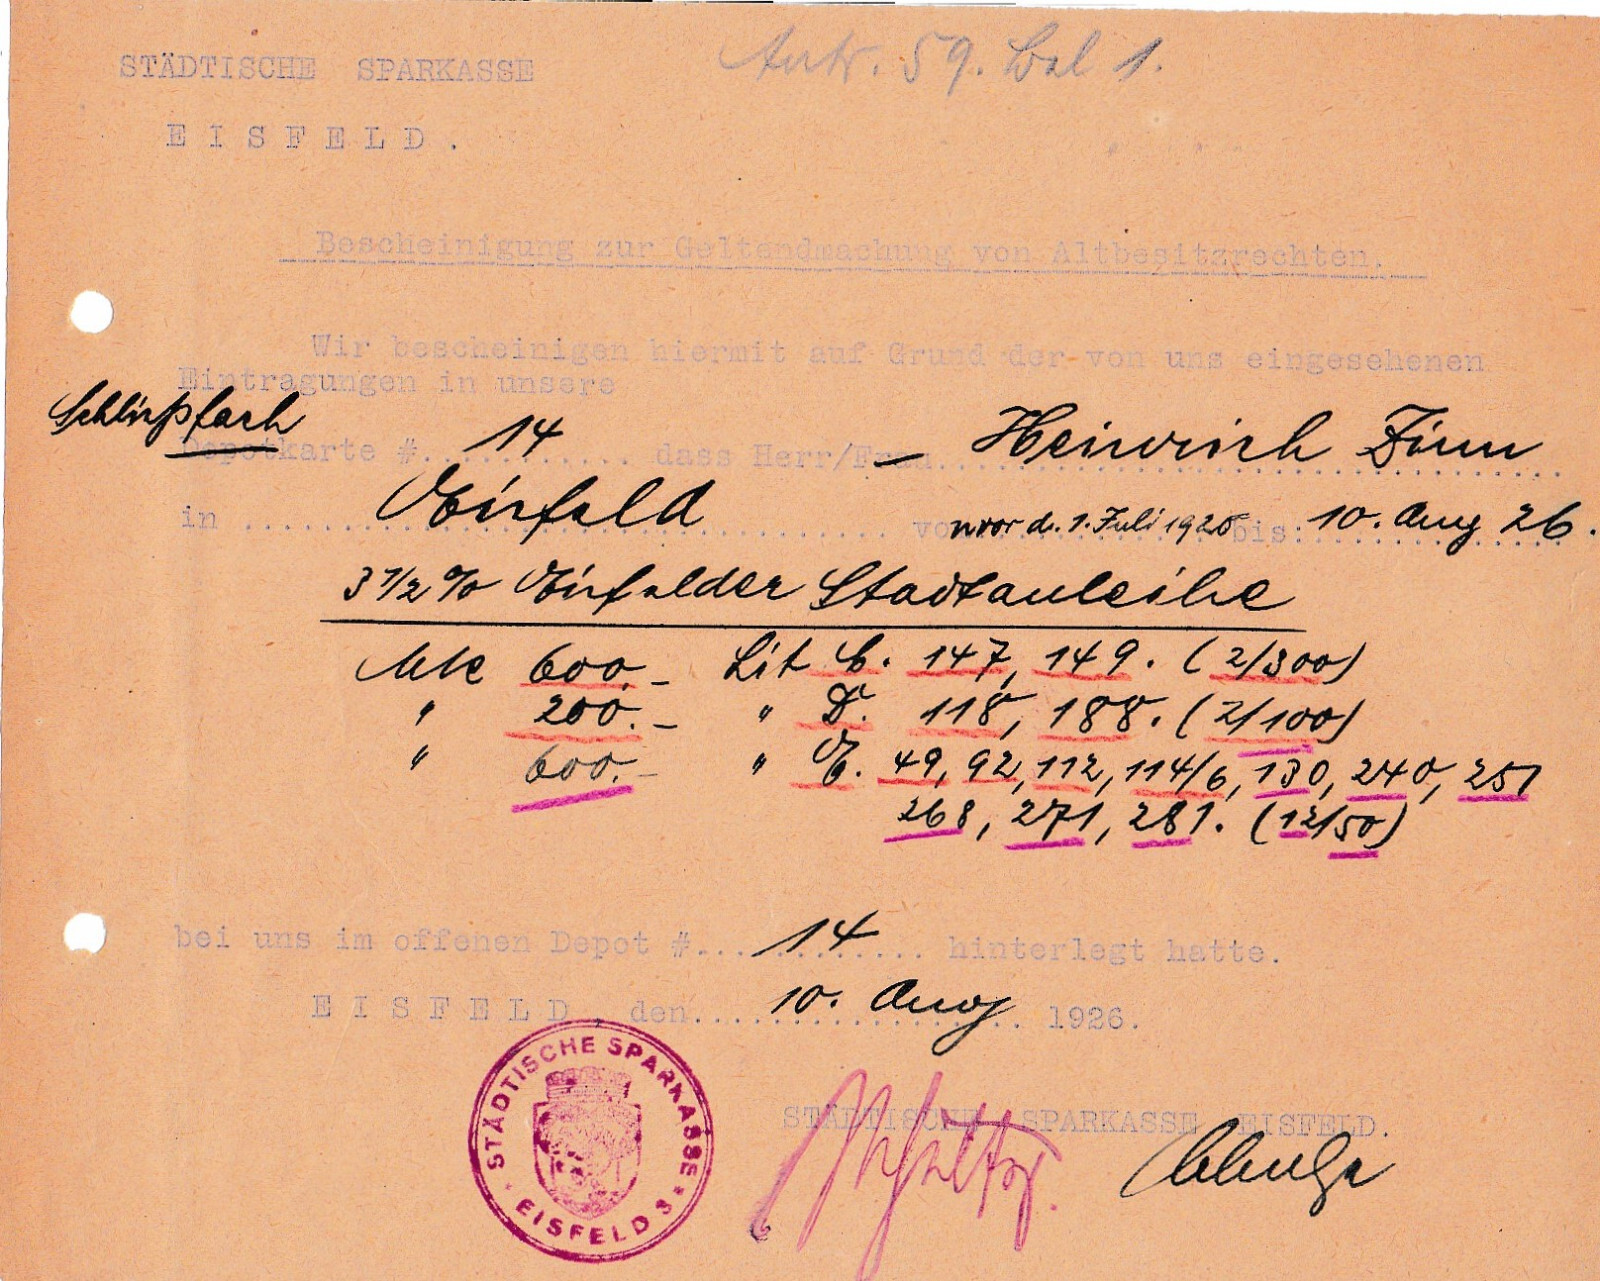 Antr. 59. Bal 1.
STÄDTISCHE SPARKASSE
EISFELD.
Bescheinigung zur Geltendmachung von Altbesitzrechten.
Wir bescheinigen hiermit auf Grund der von uns eingesehenen
Eintragungen in unsere
Schließfach
Depotkarte #. 14 dass Herr/Frau Heinrich
in Eisfeld vor d. 1. Juli 1920 bis: 10. Aug 26.
3 1/2 % Eisfelder Stadtanleihe
Mk 600.- Lit C. 147, 149. (2/300)
" 200.- " D. 118, 188. (2/100)
" 600.- " E. 49, 92, 112, 114/6, 130, 240, 251
268, 271, 281. (12/50)
bei uns im offenen Depot #. 14 hinterlegt hatte.
EISFELD, den 10. Aug 1926.
STÄDTISCHE SPARKASSE EISFELD.
STÄDTISCHE SPARKASSE
EISFELD